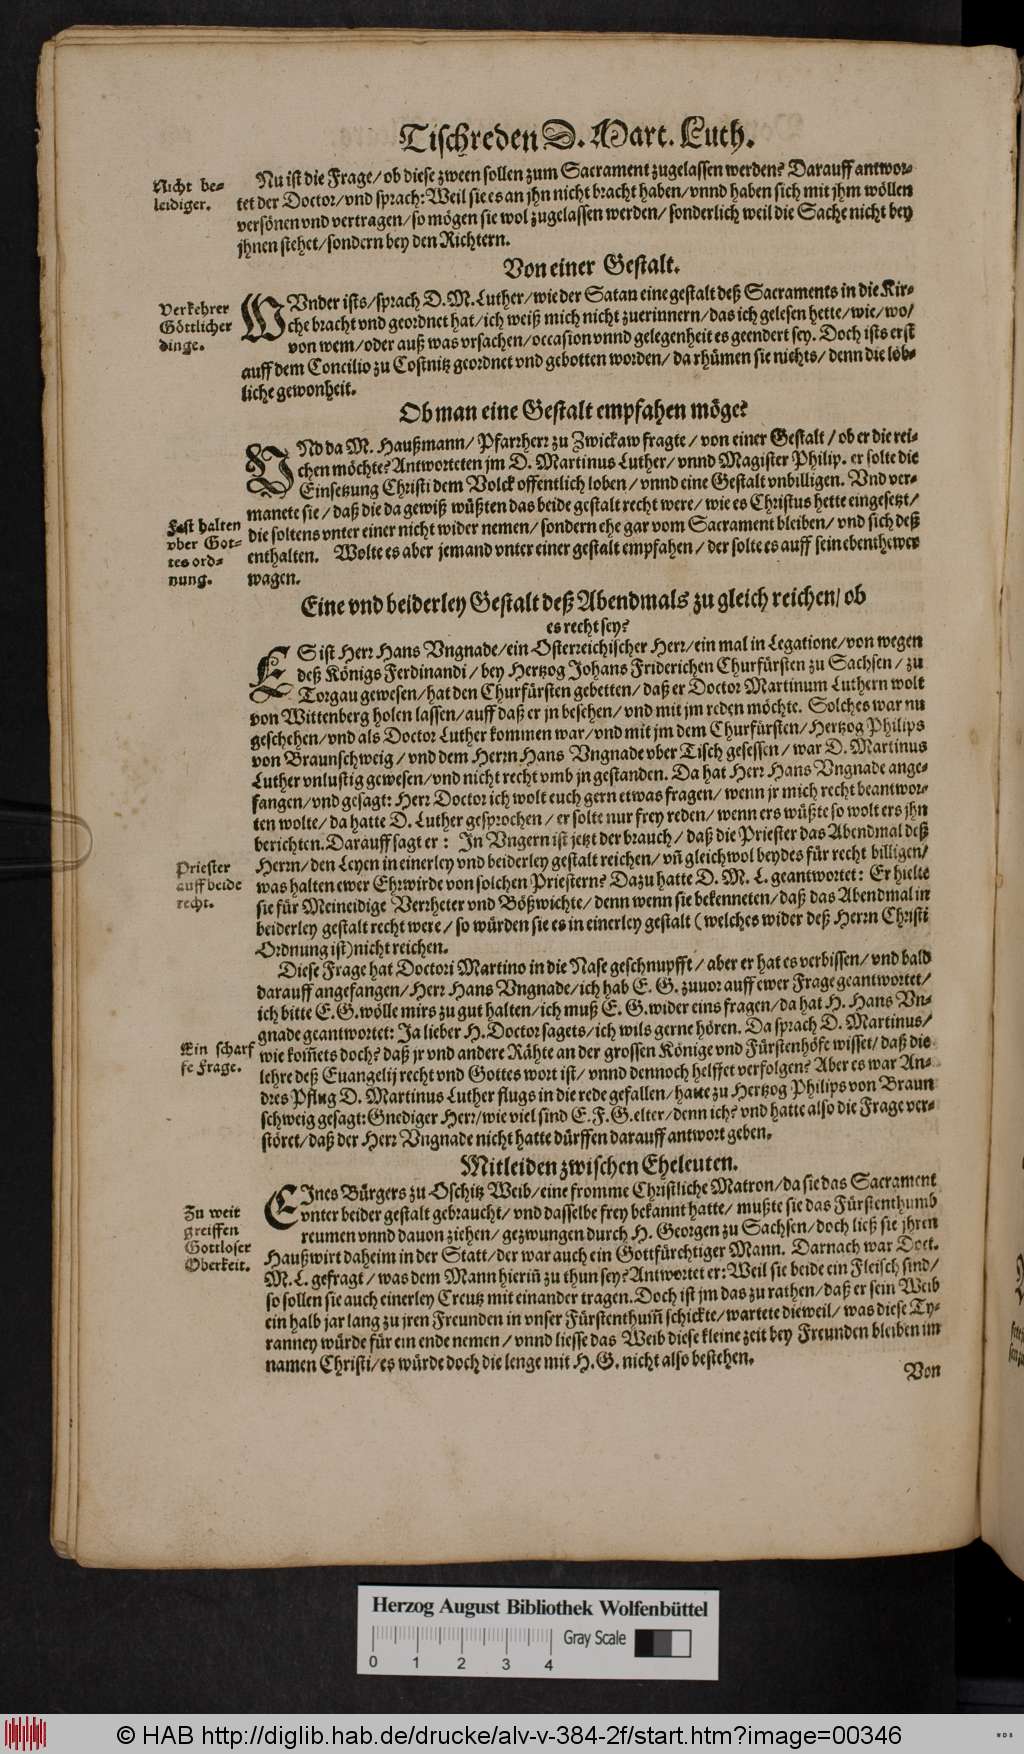 Tischreden D. Mart. Luth.
Nicht be-
leidiger.
Nu ist die Frage/ ob diese zween sollen zum Sacrament zugelassen werden? Darauff antwor-
tet der Doctor/ vnd sprach: Weil sie es an jhn nicht bracht haben/ vnnd haben sich mit jhm wöllen
versönen vnd vertragen/ so mögen sie wol zugelassen werden/ sonderlich weil die Sache nicht bey
jhnen stehet/ sondern bey den Richtern.
Von einer Gestalt.
Verkehrer
Göttlicher
dinge.
WVnder ists/ sprach D. M. Luther/ wie der Satan eine gestalt deß Sacraments in die Kir-
che bracht vnd geordnet hat/ ich weiß mich nicht zuerinnern/ das ich gelesen hette/ wie/ wo/
von wem/ oder auß was vrsachen/ occasion vnnd gelegenheit es geendert sey. Doch ists erst
auff dem Concilio zu Costnitz geordnet vnd gebotten worden/ da rhümen sie nichts/ denn die löb-
liche gewonheit.
Ob man eine Gestalt empfahen möge?
VNd da M. Haußmann/ Pfarrherr zu Zwickaw fragte/ von einer Gestalt/ ob er die rei-
chen möchte? Antworteten jm D. Martinus Luther/ vnnd Magister Philip. er solte die
Einsetzung Christi dem Volck offentlich loben/ vnnd eine Gestalt vnbilligen. Vnd ver-
manete sie/ daß die da gewiß wüßten das beide gestalt recht were/ wie es Christus hette eingesetzt/
die soltens vnter einer nicht wider nemen/ sondern ehe gar vom Sacrament bleiben/ vnd sich deß
enthalten. Wolte es aber jemand vnter einer gestalt empfahen/ der solte es auff sein ebenthewer
wagen.
Fest halten
vber Got-
tes ord-
nung.
Eine vnd beiderley Gestalt deß Abendmals zu gleich reichen/ ob
es recht sey?
ES ist Herr Hans Vngnade/ ein Osterreichischer Herr/ ein mal in Legatione/ von wegen
deß Königs Ferdinandi/ bey Hertzog Johans Friderichen Churfürsten zu Sachsen/ zu
Torgau gewesen/ hat den Churfürsten gebetten/ daß er Doctor Martinum Luthern wolt
von Wittenberg holen lassen/ auff daß er jn besehen/ vnd mit jm reden möchte. Solches war nu
geschehen/ vnd als Doctor Luther kommen war/ vnd mit jm dem Churfürsten/ Hertzog Philips
von Braunschweig/ vnd dem Herrn Hans Vngnade vber Tisch gesessen/ war D. Martinus
Luther vnlustig gewesen/ vnd nicht recht vmb jn gestanden. Da hat Herr Hans Vngnade ange-
fangen/ vnd gesagt: Herr Doctor ich wolt euch gern etwas fragen/ wenn jr mich recht beantwor-
ten wolte/ da hatte D. Luther gesprochen/ er solte nur frey reden/ wenn ers wüßte so wolt ers jhn
berichten. Darauff sagt er: In Vngern ist jetzt der brauch/ daß die Priester das Abendmal deß
Herrn/ den Leyen in einerley vnd beiderley gestalt reichen/ vñ gleichwol beydes für recht billigen/
was halten ewer Ehrwirde von solchen Priestern? Dazu hatte D. M. L. geantwortet: Er hielte
sie für Meineidige Verrheter vnd Bößwichte/ denn wenn sie bekenneten/ daß das Abendmal in
beiderley gestalt recht were/ so würden sie es in einerley gestalt (welches wider deß Herrn Christi
Ordnung ist) nicht reichen.
Priester
auff beide
recht.
Diese Frage hat Doctori Martino in die Nase geschnupfft/ aber er hat es verbissen/ vnd bald
darauff angefangen/ Herr Hans Vngnade/ ich hab E. G. zuuor auff ewer Frage geantwortet/
ich bitte E. G. wölle mirs zu gut halten/ ich muß E. G. wider eins fragen/ da hat H. Hans Vn-
gnade geantwortet: Ja lieber H. Doctor sagets/ ich wils gerne hören. Da sprach D. Martinus/
wie kom̃ets doch? daß jr vnd andere Rähte an der grossen Könige vnd Fürstenhöfe wisset/ daß die
lehre deß Euangelij recht vnd Gottes wort ist/ vnnd dennoch helffet verfolgen? Aber es war An-
dres Pflug D. Martinus Luther flugs in die rede gefallen/ hatte zu Hertzog Philips von Braun
schweig gesagt: Gnediger Herr/ wie viel sind E. F. G. elter/ denn ich? vnd hatte also die Frage ver-
störet/ daß der Herr Vngnade nicht hatte dürffen darauff antwort geben.
Ein scharf
fe Frage.
Mitleiden zwischen Eheleuten.
EInes Bürgers zu Oschitz Weib/ eine fromme Christliche Matron/ da sie das Sacrament
vnter beider gestalt gebraucht/ vnd dasselbe frey bekannt hatte/ mußte sie das Fürstenthumb
reumen vnnd dauon ziehen/ gezwungen durch H. Georgen zu Sachsen/ doch ließ sie jhren
Haußwirt daheim in der Statt/ der war auch ein Gottfürchtiger Mann. Darnach war Doct.
M. L. gefragt/ was dem Mann hieriñ zu thun sey? Antwortet er: Weil sie beide ein Fleisch sind/
so sollen sie auch einerley Creutz mit einander tragen. Doch ist jm das zu rathen/ daß er sein Weib
ein halb jar lang zu jren Freunden in vnser Fürstenthum̃ schickte/ wartete dieweil/ was diese Ty-
ranney würde für ein ende nemen/ vnnd liesse das Weib diese kleine zeit bey Freunden bleiben im
namen Christi/ es würde doch die lenge mit H. G. nicht also bestehen.
Zu weit
greiffen
Gottloser
Oberkeit.
Von
Herzog August Bibliothek Wolfenbüttel
Gray Scale
0 1 2 3 4
© HAB http://diglib.hab.de/drucke/alv-v-384-2f/start.htm?image=00346